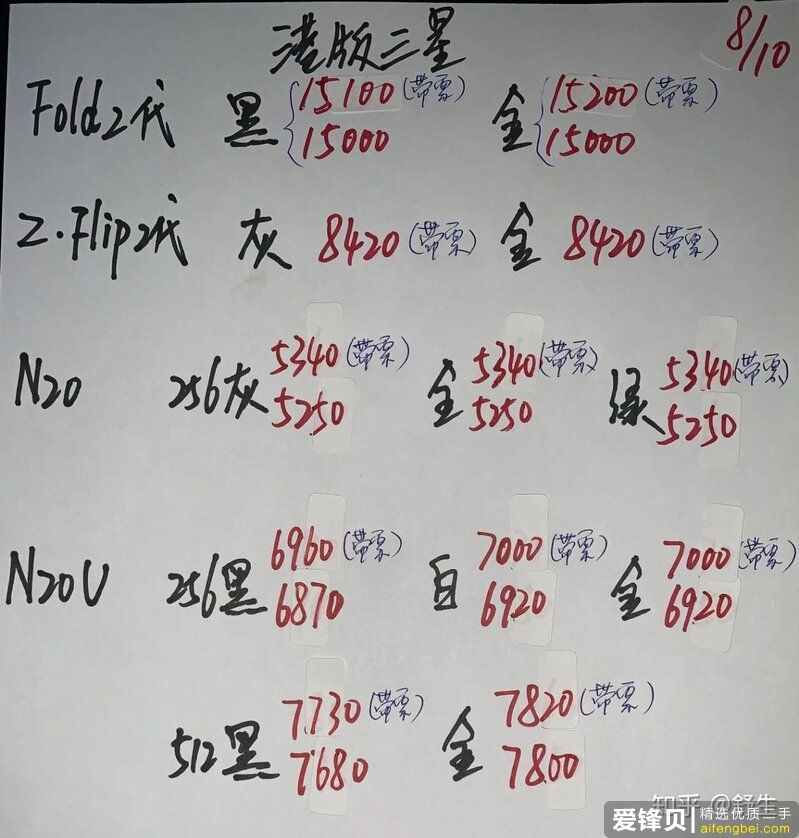 港版三星 8/10
Fold2代 黑 15100(带票) 金 15200(带票)
15000 15000
Z.Flip2代 灰 8420(带票) 金 8420(带票)
5340(带票) 5340(带票) 5340(带票)
N20 256灰 5250 金 5250 绿 5250
6960(带票) 7000(带票) 7000(带票)
N20U 256黑 6870 白 6920 金 6920
7730(带票) 7820(带票)
512黑 7680 金 7800
知乎 @舒生
爱锋贝 精选优质二手
aifengbei.com